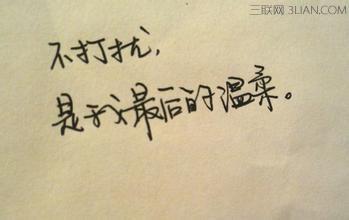 三联网 3LIAN.COM
不打扰，
是我最后的温柔。